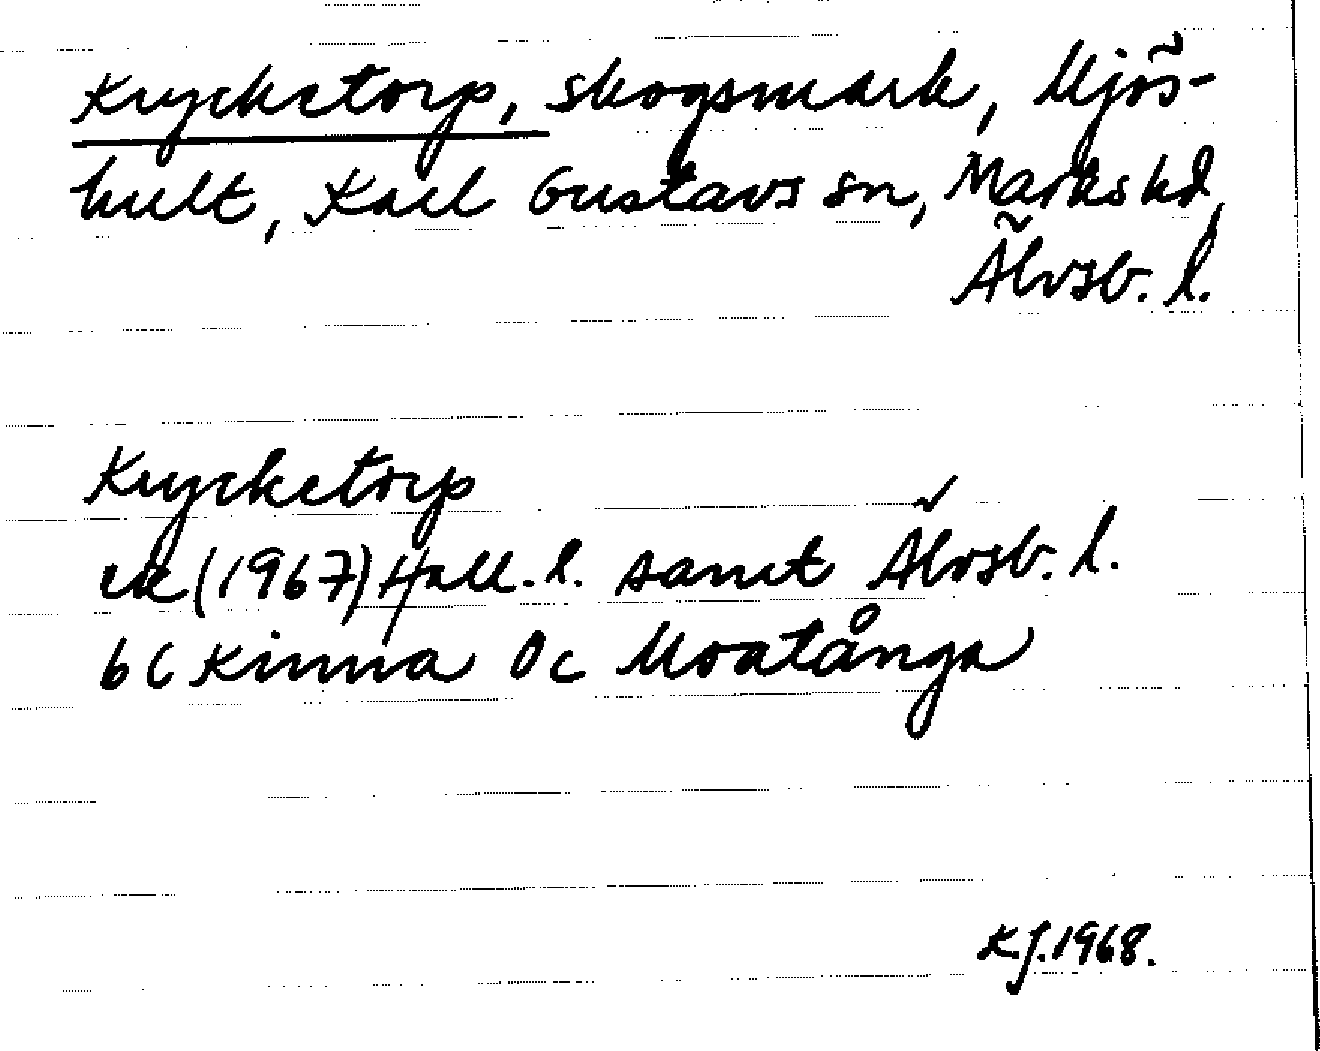 Krycketorp, skogsmark, Mjös-
hult, Karl Gustavs sn, Marks hd,
Älvsb. l.
Krycketorp
ek (1967) Hall. l. samt Älvsb. l.
6 C Kinna 0c Moatånga
K.J. 1968.